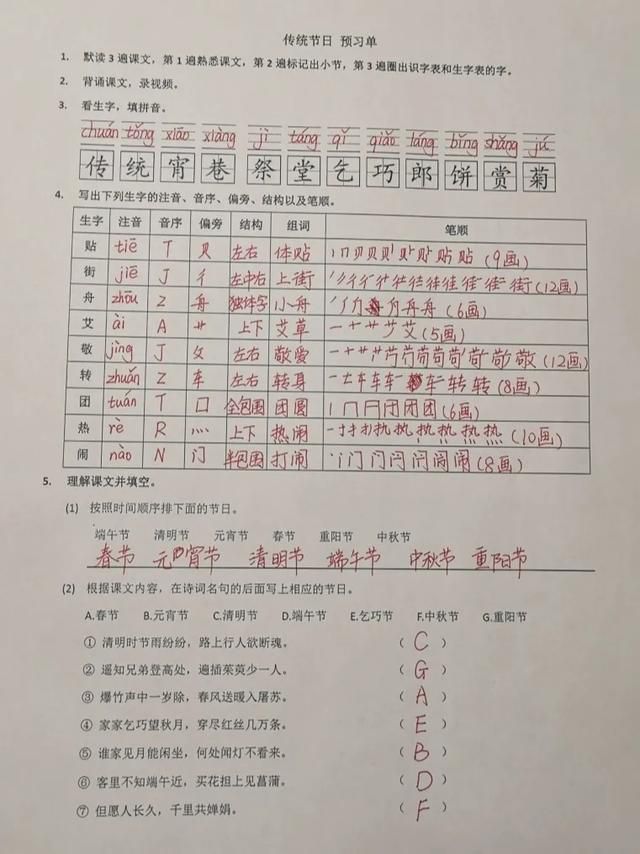 传统节日 预习单
1. 默读 3 遍课文，第 1 遍熟悉课文，第 2 遍标记出小节，第 3 遍圈出识字表和生字表的字。
2. 背诵课文，录视频。
3. 看生字，填拼音。
chuán tǒng xiāo xiàng jì táng qǐ qiǎo láng bǐng shǎng jú
传 统 宵 巷 祭 堂 乞 巧 郎 饼 赏 菊
4. 写出下列生字的注音、音序、偏旁、结构以及笔顺。
生字 注音 音序 偏旁 结构 组词 笔顺
贴 tiē T 贝 左右 体贴 (9画)
街 jiē J 彳 左中右 上街 (12画)
舟 zhōu Z 舟 独体字 小舟 (6画)
艾 ài A 艹 上下 艾草 (5画)
敬 jìng J 攵 左右 敬爱 (12画)
转 zhuǎn Z 车 左右 转身 (8画)
团 tuán T 囗 全包围 团圆 (6画)
热 rè R 灬 上下 热闹 (10画)
闹 nào N 门 半包围 打闹 (8画)
5. 理解课文并填空。
(1) 按照时间顺序排下面的节日。
端午节 清明节 元宵节 春节 重阳节 中秋节
春节 元宵节 清明节 端午节 中秋节 重阳节
(2) 根据课文内容，在诗词名句的后面写上相应的节日。
A.春节 B.元宵节 C.清明节 D.端午节 E.乞巧节 F.中秋节 G.重阳节
① 清明时节雨纷纷，路上行人欲断魂。 ( C )
② 遥知兄弟登高处，遍插茱萸少一人。 ( G )
③ 爆竹声中一岁除，春风送暖入屠苏。 ( A )
④ 家家乞巧望秋月，穿尽红丝几万条。 ( E )
⑤ 谁家见月能闲坐，何处闻灯不看来。 ( B )
⑥ 客里不知端午近，买花担上见菖蒲。 ( D )
⑦ 但愿人长久，千里共婵娟。 ( F )